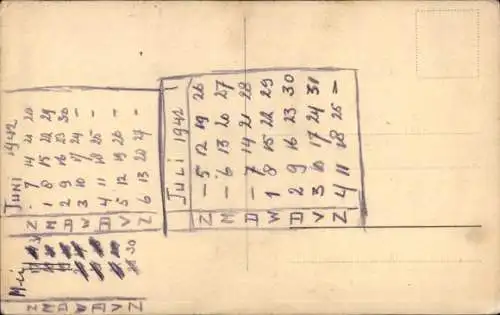 JUNI 1942
Z - 7 14 21 28
M 1 8 15 22 29
D 2 9 16 23 30
W 3 10 17 24 -
D 4 11 18 25 -
V 5 12 19 26 -
Z 6 13 20 27 -
JULI 1942
Z - 5 12 19 26
M - 6 13 20 27
D - 7 14 21 28
W 1 8 15 22 29
D 2 9 16 23 30
V 3 10 17 24 31
Z 4 11 18 25 -
Mei
Z
M
D
W
D
V
Z 30